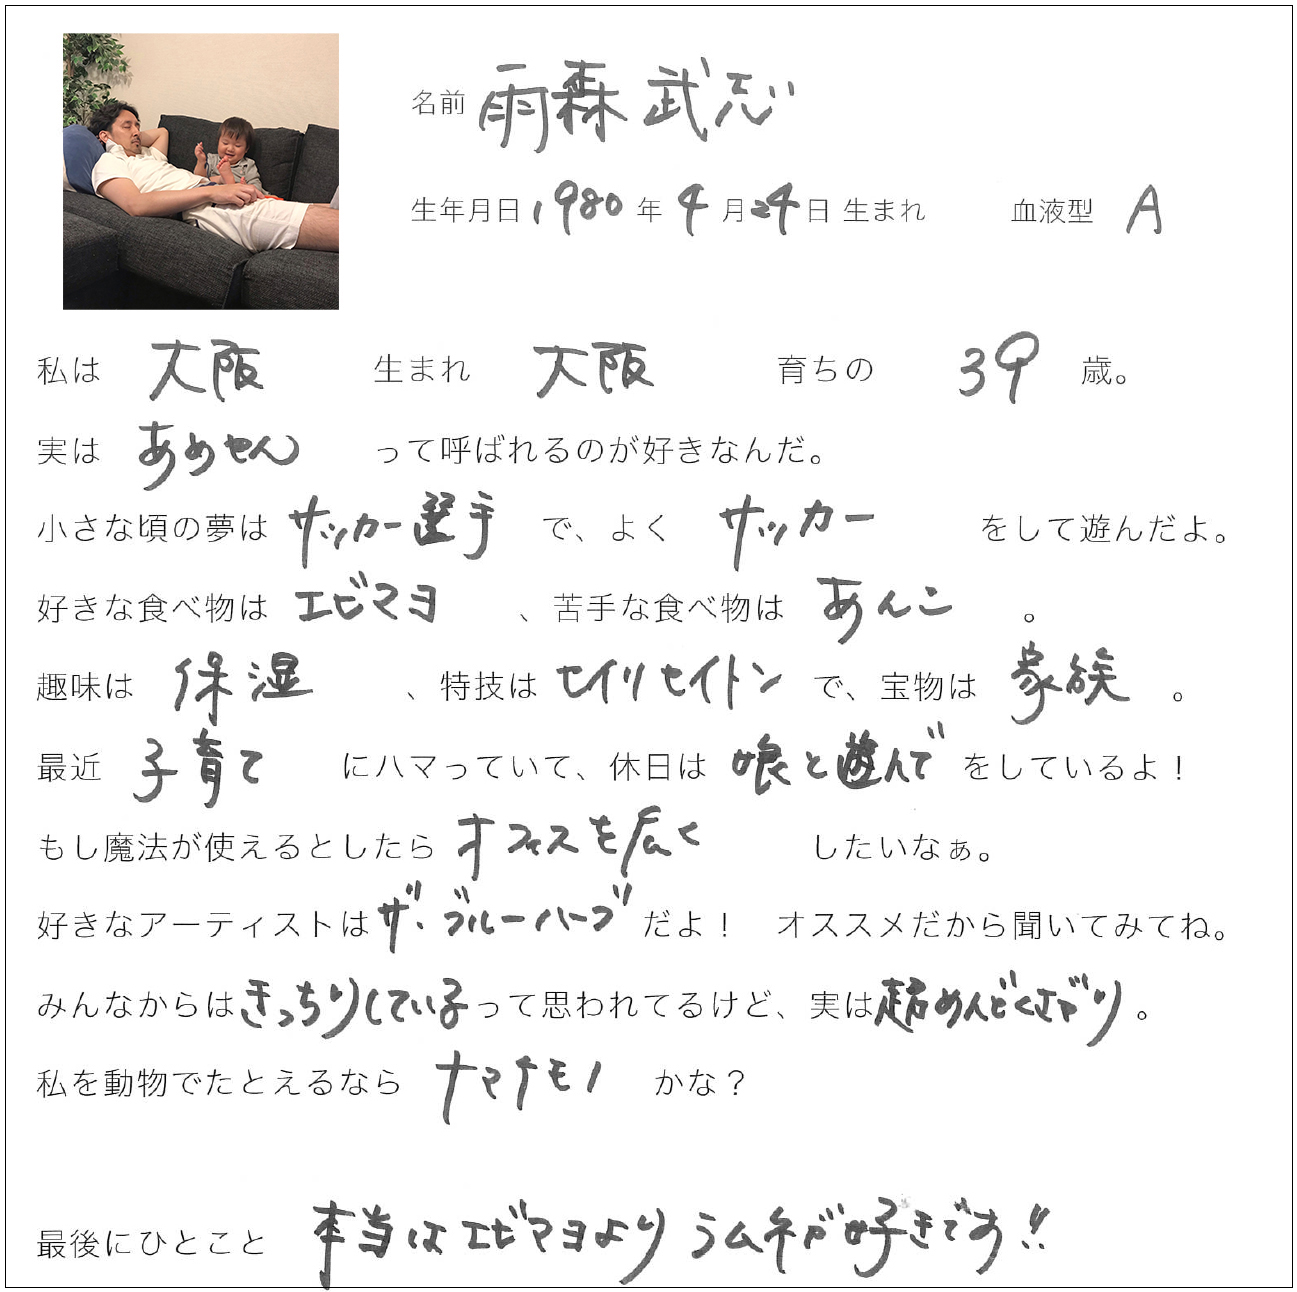 名前 雨森 武志
生年月日 1980 年 4 月 24 日 生まれ 血液型 A
私は 大阪 生まれ 大阪 育ちの 39 歳。
実は あめせん って呼ばれるのが好きなんだ。
小さな頃の夢は サッカー選手 で、よく サッカー をして遊んだよ。
好きな食べ物は エビマヨ 、苦手な食べ物は あんこ 。
趣味は 保湿 、特技は セイリセイトン で、宝物は 家族 。
最近 子育て にハマっていて、休日は 娘と遊んで をしているよ！
もし魔法が使えるとしたら オフィスを広く したいなぁ。
好きなアーティストは ザ・ブルーハーブ だよ！ オススメだから聞いてみてね。
みんなからは きっちりしている って思われてるけど、実は 超めんどくさがり 。
私を動物でたとえるなら ナマケモノ かな？
最後にひとこと 本当はエビマヨより ラムネが好きです!!